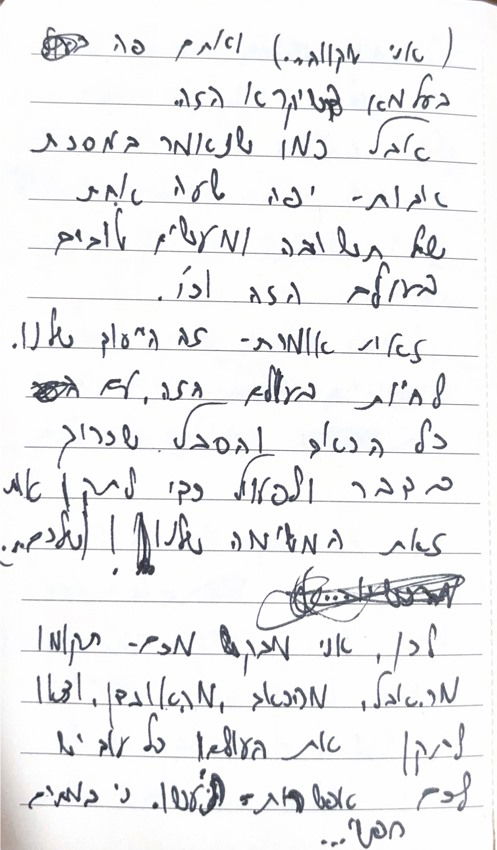 (אני מקווה...) ואתם פה
בעלמא דשיקרא הזה.
אבל כמו שנאמר במסכת
אבות- יפה שעה אחת
של תשובה ומעשים טובים
בעולם הזה וכו'.
זאת אומרת- זה הייעוד שלנו.
לחיות בעולם הזה, עם
כל הכאב והסבל שכרוך
בדבר ולפעול כדי לתקן את
זאת המשימה שלנו! (שלכם.)
לכן, אני מבקש מכם- תקומו
מהאבל, מהכאב, מהאובדן, וצאו
לתקן את העולם! כל עוד יש
לכם אפשרות- תעשו. כי במתים
חפשי...